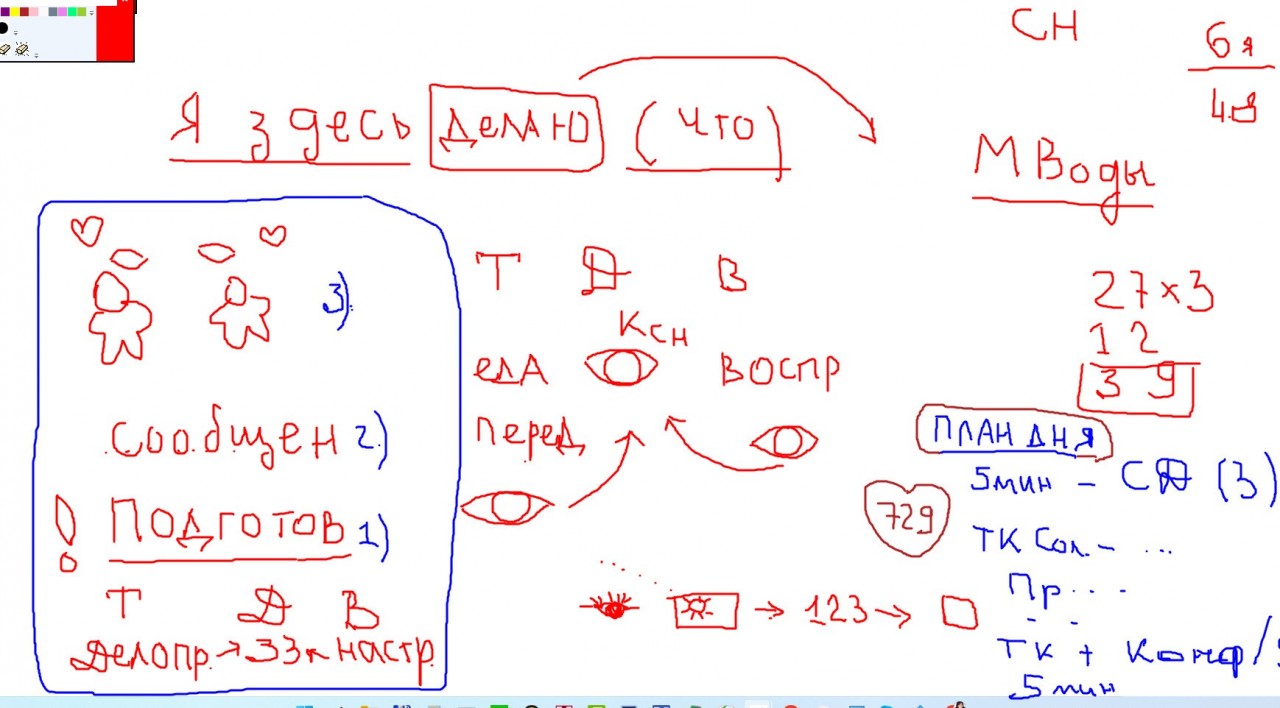 СН
6 я
4.8
Я здесь делаю (что)
М Воды
Т Д В
3)
Ксн
27×3
12
39
еда воспр
сообщен 2)
перед
ПЛАН ДНЯ
5мин - СД (3)
! Подготов 1)
729
ТК Сол. - ...
Пр...
123
Т Д В
Делопр. → 33 ← настр.
ТК + Конф/
5 мин